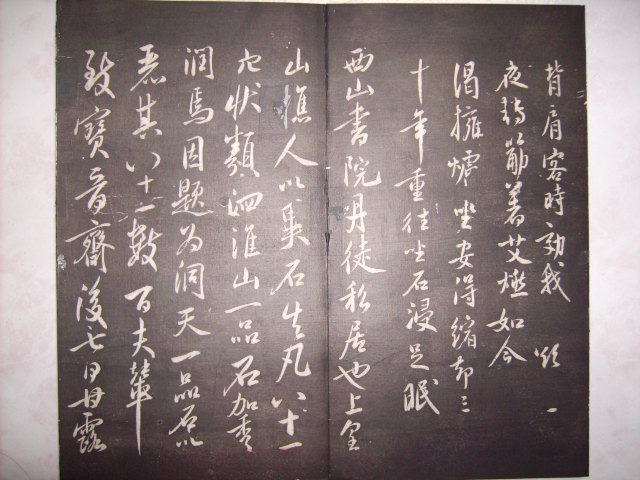 背肩客時効我 一
夜轉筋著艾燃如今
渴擁爐坐安得縮却三
十年重往坐石浸足眠
西山書院丹徒私居也上皇
山樵人以異石告凡八十一
穴狀類泗淮山一品石加秀
潤焉因題為洞天一品石以
麗其八十一數百夫輦
致寶晉齋後七日甘露